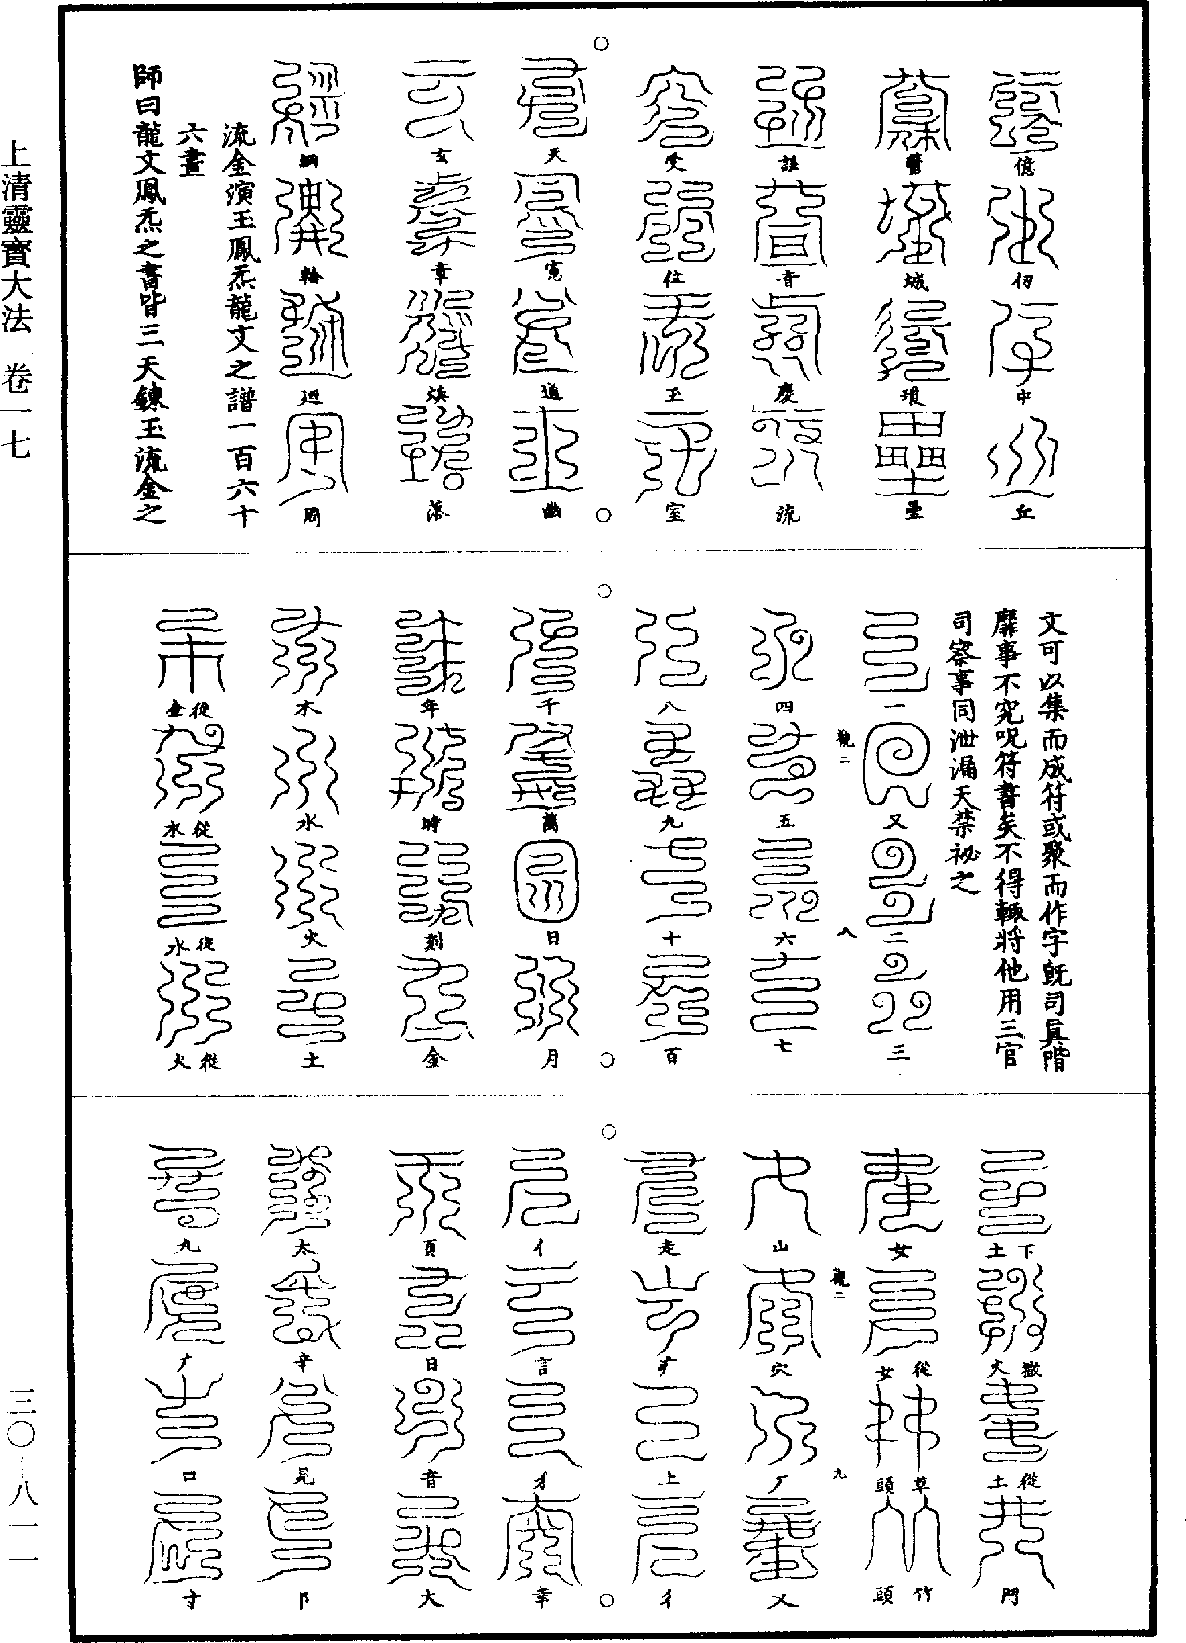 上清靈寶大法　卷一七
三〇・八一一
億
仞
中
丘
醫
城
琅
壘
誰
音
慶
流
受
位
玉
室
天
寬
道
幽
玄
章
煥
落
綱
輪
迴
周
流金演玉鳳炁龍文之譜一百六十
六畫
師曰龍文鳳炁之書皆三天鍊玉流金之
文可以集而成符或聚而作字旣司眞階
靡事不究呪符書矣不得輒將他用三官
司察事同泄漏天禁祕之
一
又
二
三
觀二
八
四
五
六
七
八
九
十
百
千
萬
日
月
年
時
刻
金
木
水
火
土
從金
從水
從水
從火
下土
嶽文
從土
門
女
從女
草頭
竹頭
觀二
九
山
穴
厂
又
走
疒
上
彳
亻
言
才
宰
頁
日
音
大
太
辛
見
阝
九
广
口
寸